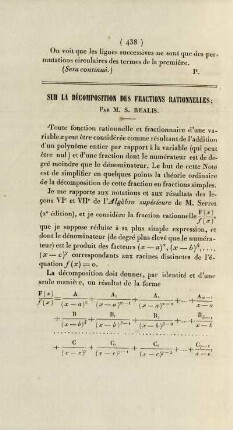 ( 438 )
On voit que les lignes successives ne sont que des per-
mutations circulaires des termes de la première.
(Sera continué.) P.
SUR LA DÉCOMPOSITION DES FRACTIONS RATIONNELLES;
PAR M. S. REALIS.
Toute fonction rationnelle et fractionnaire d'une va-
riable x peut être considérée comme résultant de l'addition
d'un polynôme entier par rapport à la variable (qui peut
être nul) et d'une fraction dont le numérateur est de de-
gré moindre que le dénominateur. Le but de cette Note
est de simplifier en quelques points la théorie ordinaire
de la décomposition de cette fraction en fractions simples.
Je me rapporte aux notations et aux résultats des le-
çons VIe et VIIe de l'Algèbre supérieure de M. Serret
(2e édition), et je considère la fraction rationnelle F(x)/f(x),
que je suppose réduite à sa plus simple expression, et
dont le dénominateur (de degré plus élevé que le numéra-
teur) est le produit des facteurs (x — a)α, (x — b)β,...,
(x — c)γ correspondants aux racines distinctes de l'é-
quation f(x) = 0.
La décomposition doit donner, par identité et d'une
seule manière, un résultat de la forme
F(x)/f(x) = A/(x — a)α + A1/(x — a)α−1 + A2/(x — a)α−2 + ... + Aα−1/(x — a)
+ B/(x — b)β + B1/(x — b)β−1 + B2/(x — b)β−2 + ... + Bβ−1/(x — b)
+ ...
+ C/(x — c)γ + C1/(x — c)γ−1 + C2/(x — c)γ−2 + ... + Cγ−1/(x — c)